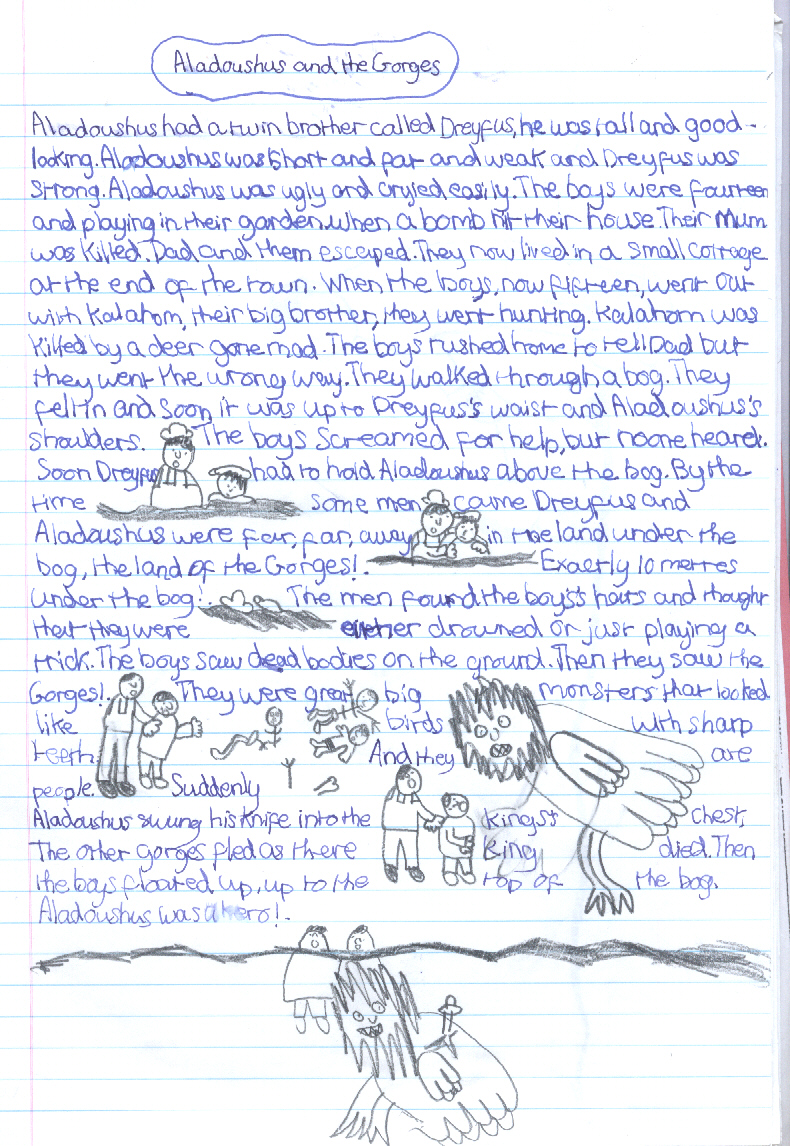 Aladoushus and the Gorges
Aladoushus had a twin brother called Dreyfus, he was tall and good-
looking. Aladoushus was short and fat and weak and Dreyfus was
strong. Aladoushus was ugly and cryied easily. The boys were fourteen
and playing in their garden. when a bomb hit their house. Their Mum
was killed. Dad and them escaped. They now lived in a small cottage
at the end of the town. When the boys, now fifteen, went out
with Kalahom, their big brother, they went hunting. Kalahom was
killed by a deer gone mad. The boys rushed home to tell Dad but
they went the wrong way. They walked through a bog. They
fell in and soon it was up to Dreyfus's waist and Aladoushus's
shoulders. The boys screamed for help, but no one heard.
Soon Dreyfus had to hold Aladoushus above the bog. By the
time some men came Dreyfus and
Aladoushus were far, far, away in the land under the
bog, the land of the Gorges!. Exactly 10 metres
under the bog!. The men found the boys's hats and thought
that they were either drowned or just playing a
trick. The boys saw dead bodies on the ground. Then they saw the
Gorges!. They were great big monsters that looked
like birds with sharp
teeth. And they are
people. Suddenly
Aladoushus swung his knife into the kings's chest,
The other gorges fled as there king died. Then
the boys floated up, up to the top of the bog.
Aladoushus was a hero!.